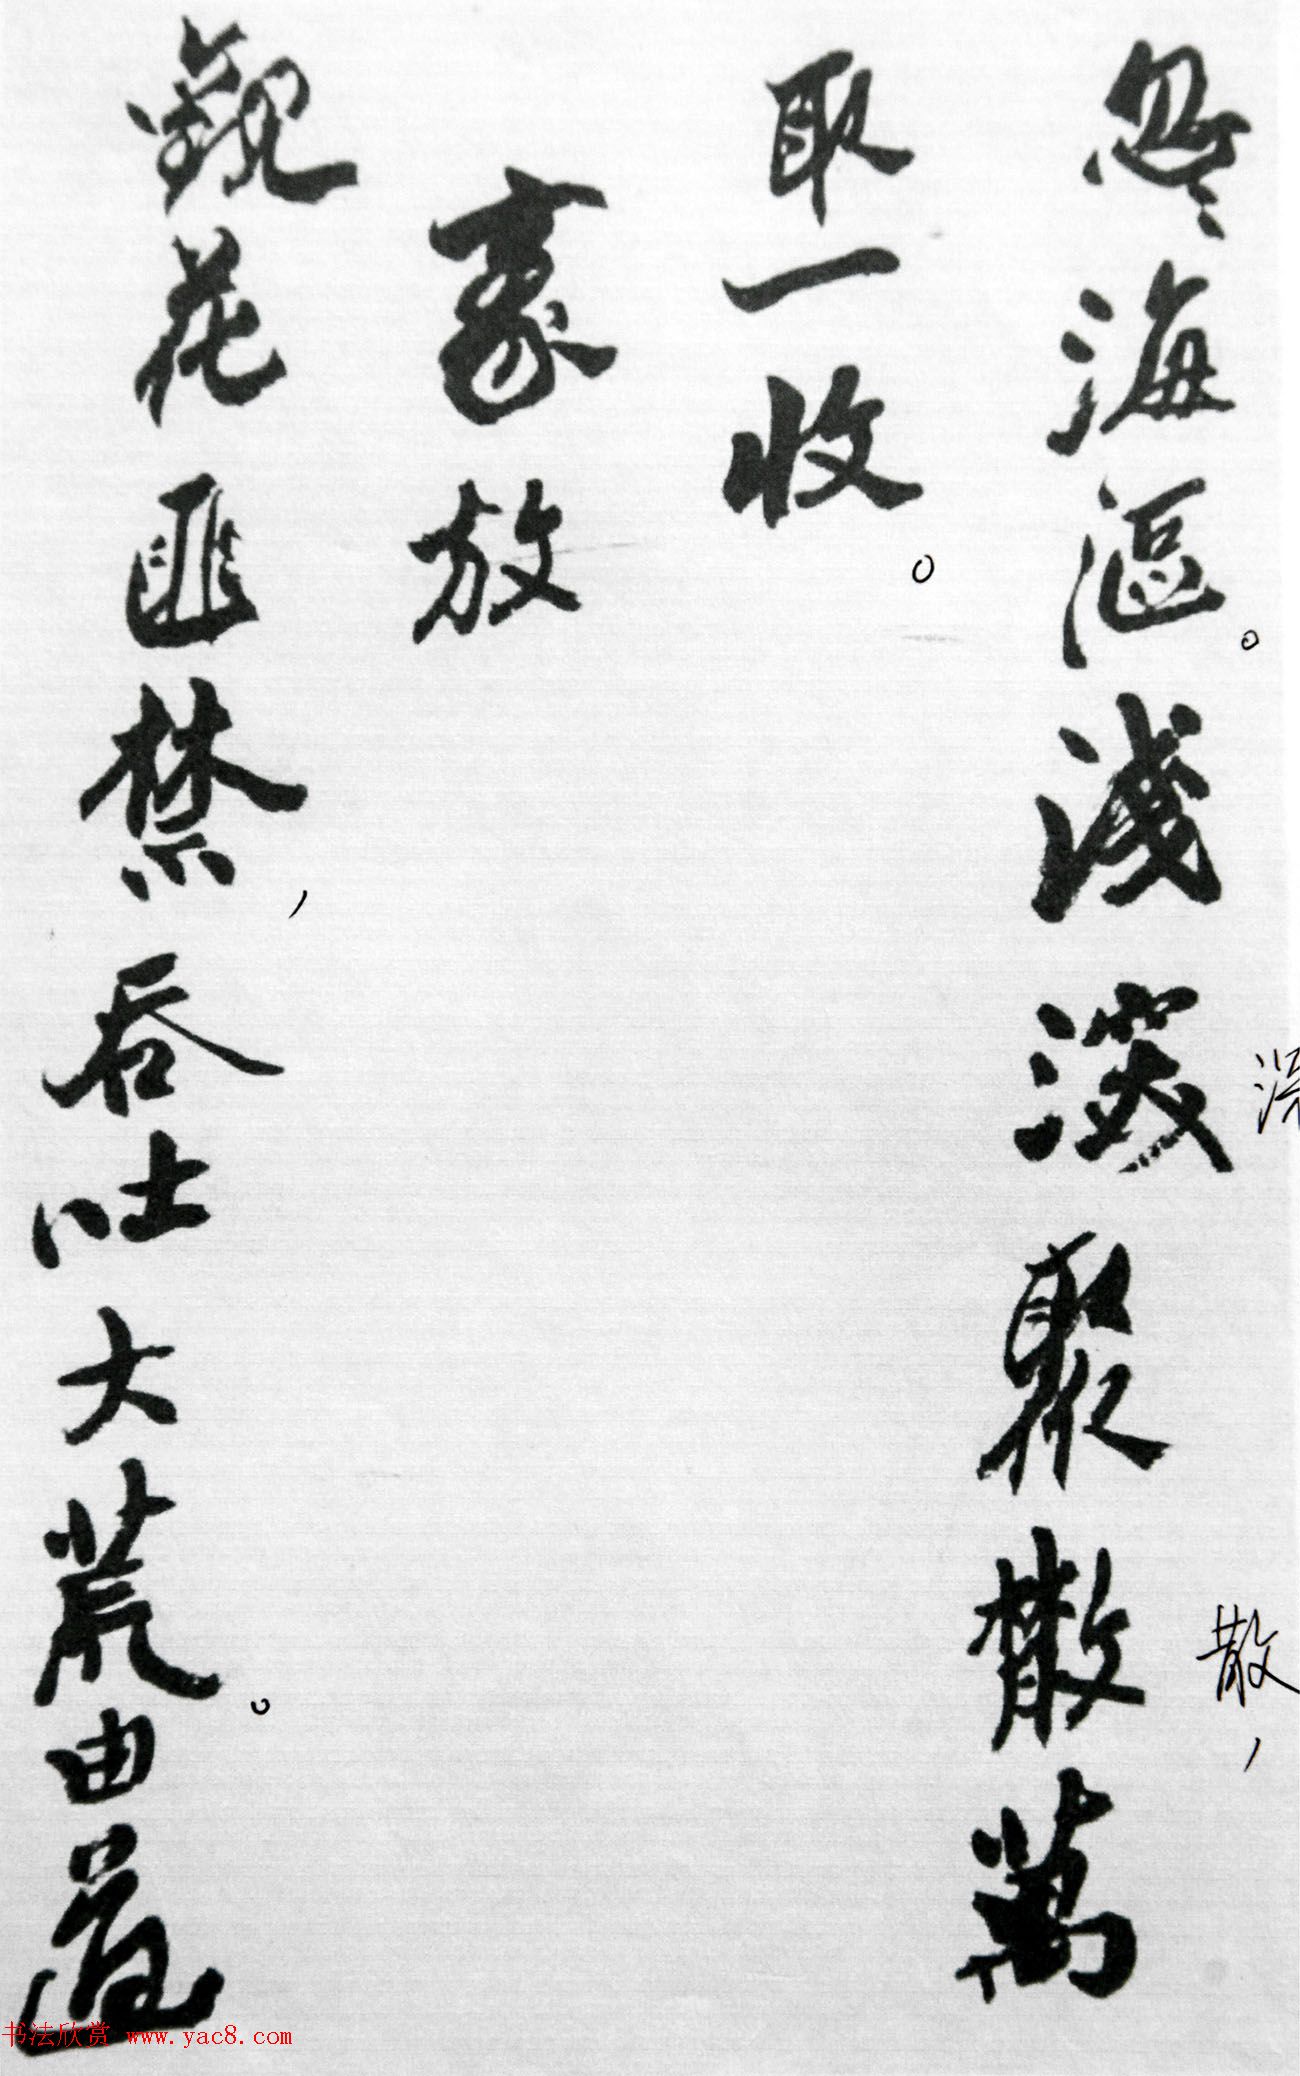 忽海漚。浅深聚散萬
深
散，
取一收。
豪放
觀花匪禁，吞吐大荒。由道
书法欣赏 www.yac8.com